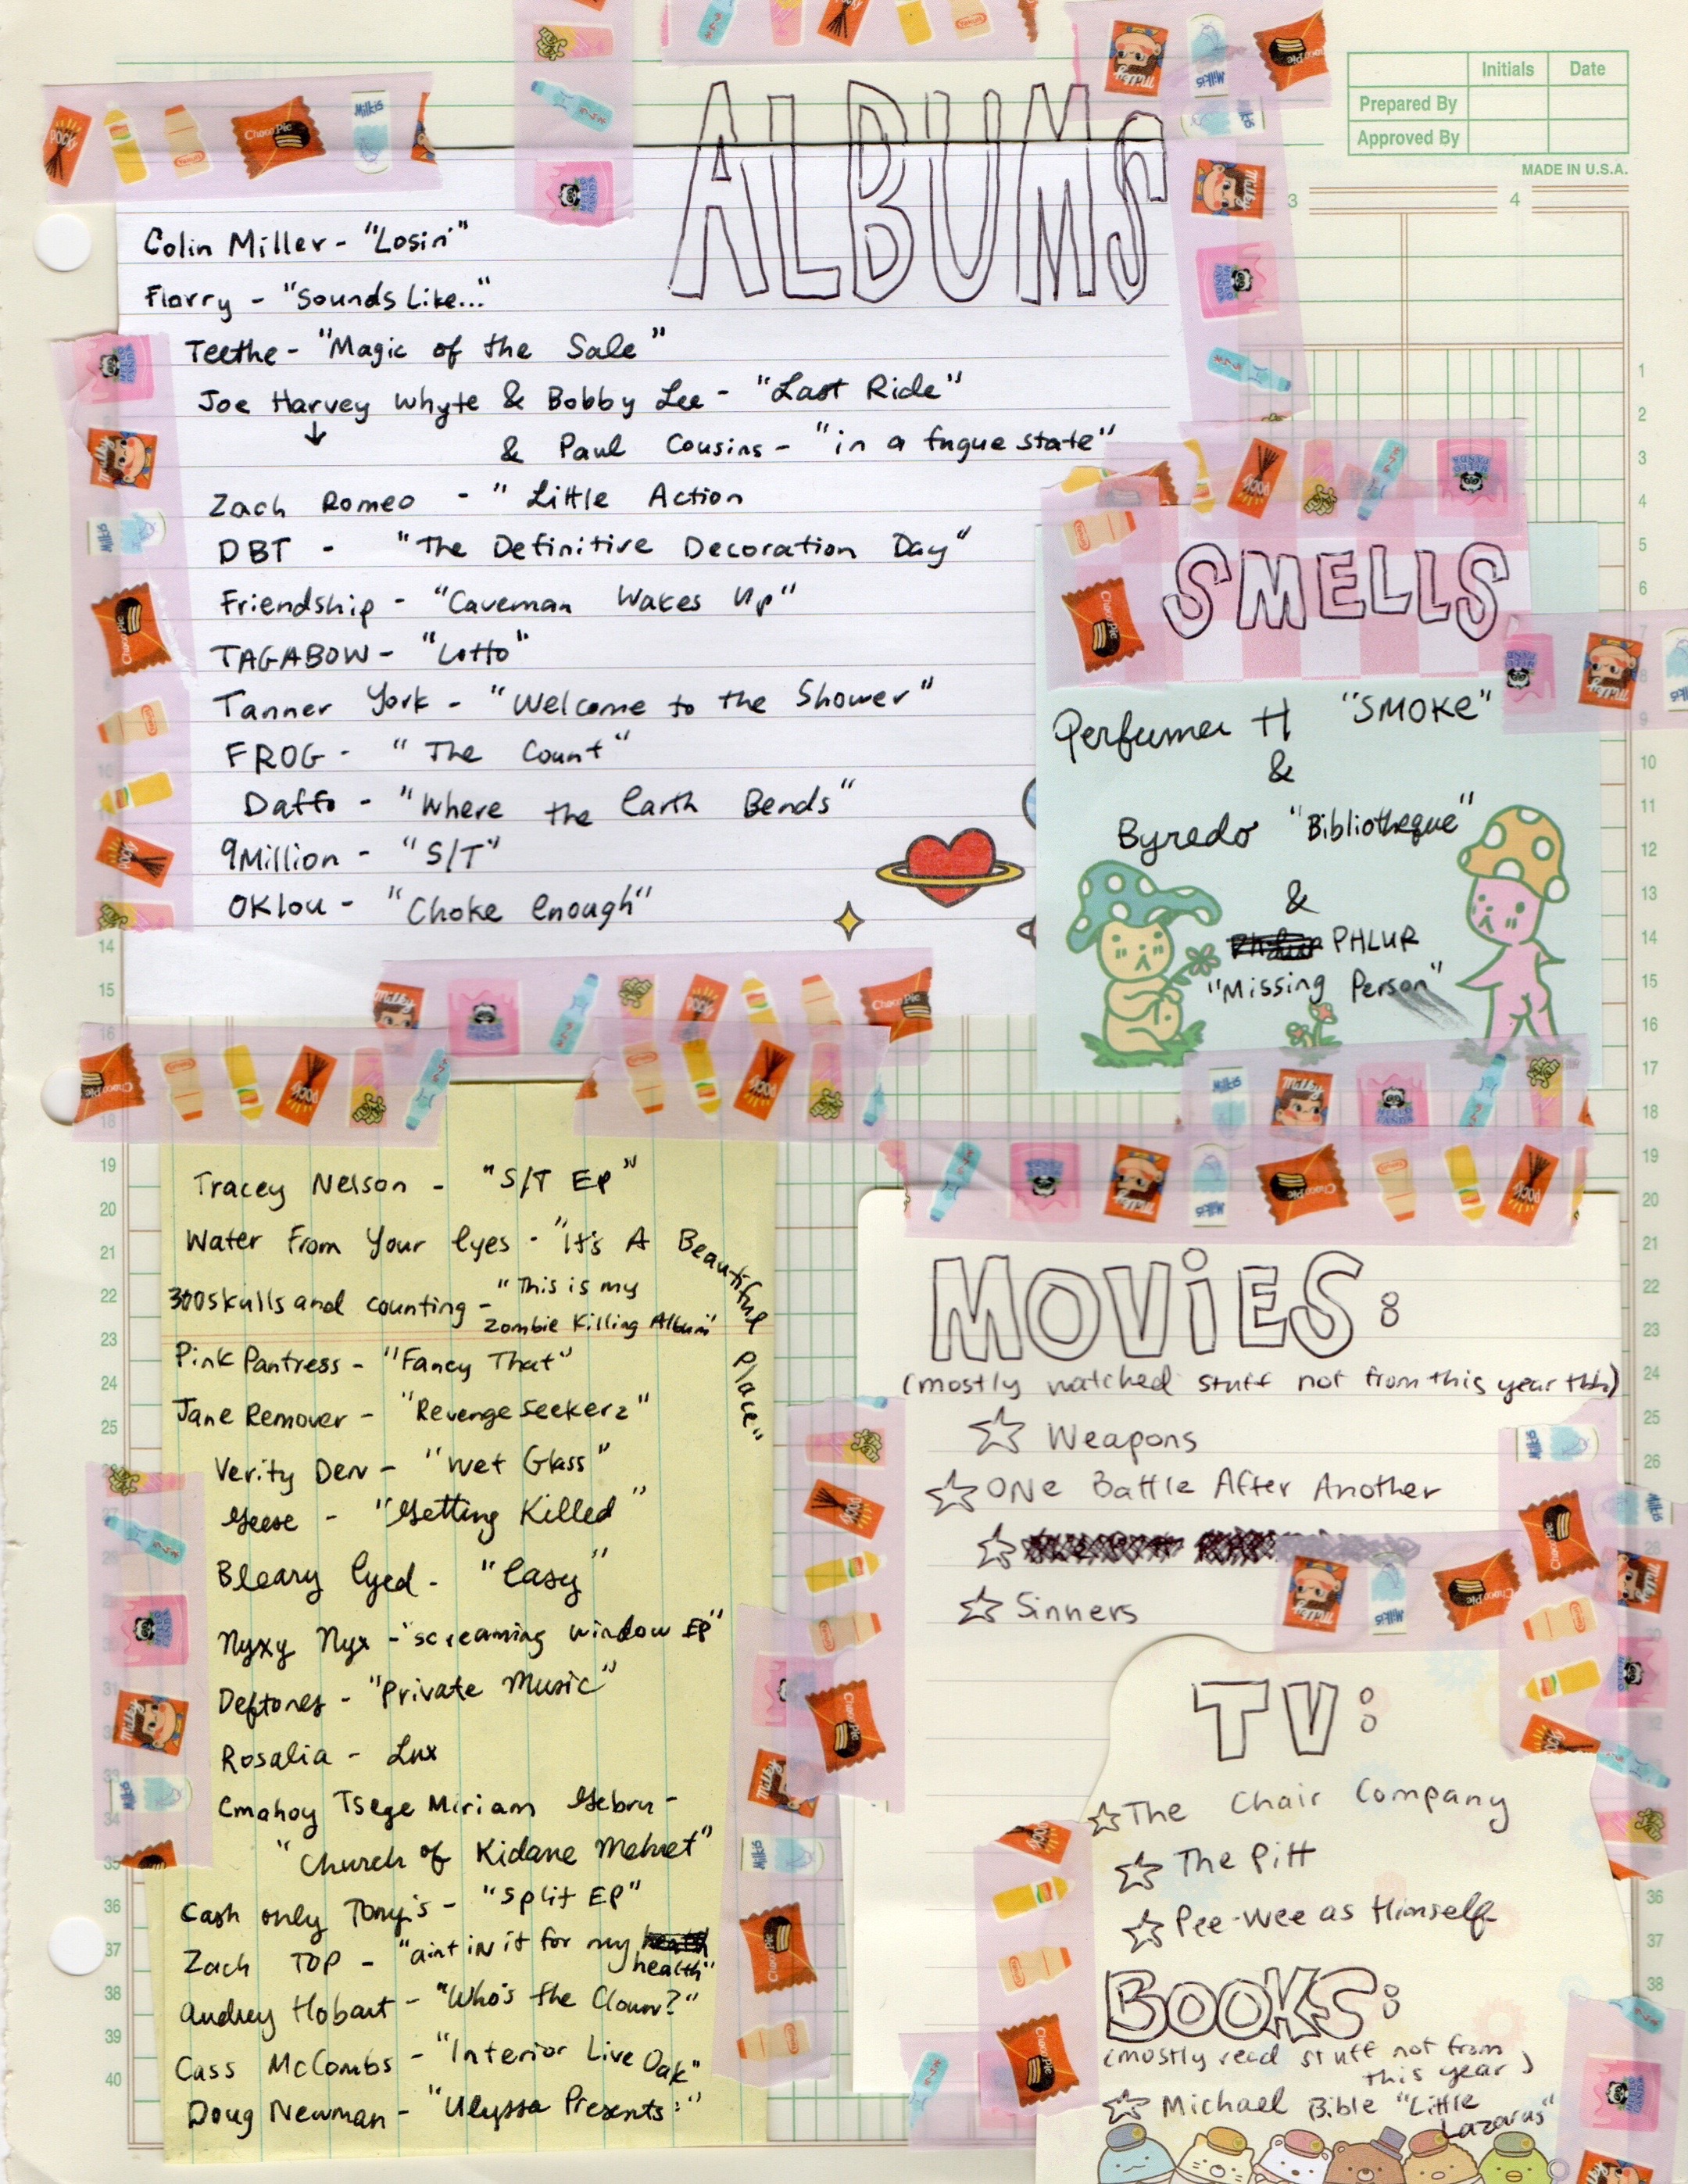 ALBUMS
Initials Date
Prepared By
Approved By
MADE IN U.S.A.
3 4
Colin Miller - "Losin'"
Florry - "Sounds Like..."
Teethe - "Magic of the Sale"
Joe Harvey Whyte & Bobby Lee - "Last Ride"
↓ & Paul Cousins - "in a fugue state"
Zach Romeo - " Little Action
DBT - "The Definitive Decoration Day"
Friendship - "Caveman Wakes Up"
TAGABOW - "Lotto"
Tanner York - "Welcome to the Shower"
FROG - "The Count"
Daffo - "Where the Earth Bends"
9Million - "S/T"
OKlou - "Choke Enough"
SMELLS
Perfumer H "SMOKE"
&
Byredo "Bibliotheque"
&
PHLUR
"Missing Person"
Tracey Nelson - "S/T EP"
Water From Your Eyes - "It's A Beautiful Place"
300skulls and counting - "This is my
Zombie Killing Album"
Pink Pantress - "Fancy That"
Jane Remover - "Revengeseekerz"
Verity Den - "Wet Glass"
Geese - "Getting Killed"
Bleary Eyed - "Easy"
Nyxy Nyx - "screaming window EP"
Deftones - "Private Music"
Rosalia - Lux
Emahoy Tsege Miriam Gebru -
"Church of Kidane Mehret"
Cash only Tony's - "Split EP"
Zach TOP - "aint in it for my
health"
Audrey Hobart - "Who's the Clown?"
Cass McCombs - "Interior Live Oak"
Doug Newman - "Ulyssa Presents:"
MOViES:
(mostly watched stuff not from this year tbh)
☆ Weapons
☆ ONe Battle After Another
☆ Sinners
TV:
☆ The Chair Company
☆ The Pitt
☆ Pee-Wee as Himself
BOOKS:
(mostly read stuff not from
this year)
☆ Michael Bible "Little
Lazarus"